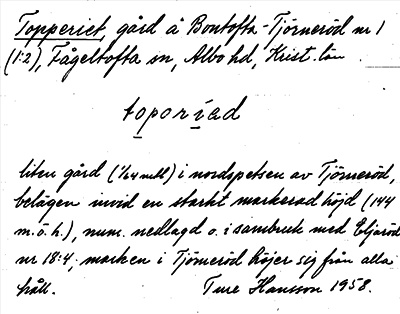 Topperiet, gård å Bontofta-Tjörneröd nr 1
(1:2), Fågeltofta sn, Albo hd, Krist. län
toporiad
liten gård (1/64 mtl) i nordspetsen av Tjörneröd,
belägen invid en starkt markerad höjd (144
m.ö.h.), num. nedlagd o. i sambruk med Eljaröd
nr 18:4; marken i Tjörneröd höjer sig från alla
håll. Ture Hansson 1958.